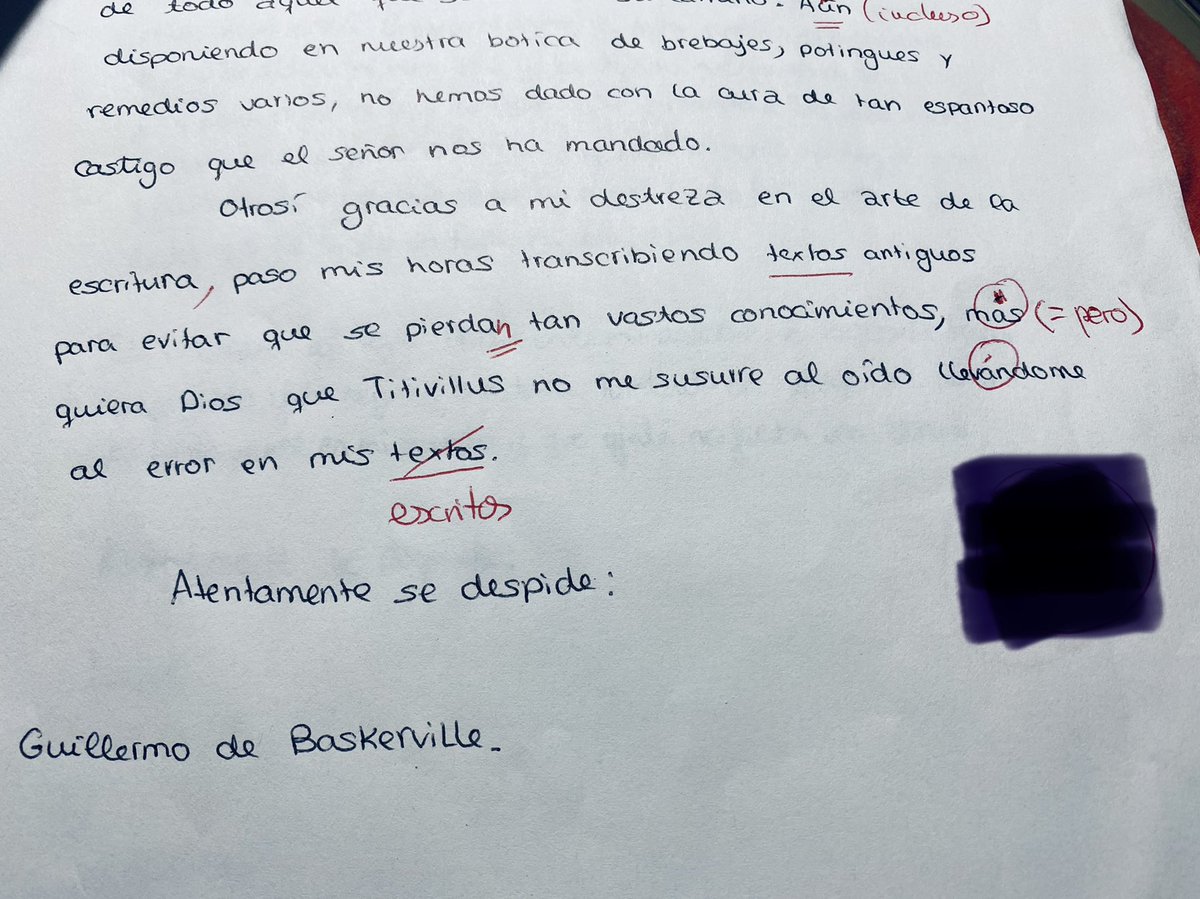 de todo aquel Aún (incluso)
disponiendo en nuestra botica de brebajes, potingues y
remedios varios, no hemos dado con la cura de tan espantoso
castigo que el señor nos ha mandado.
Otrosí gracias a mi destreza en el arte de la
escritura, paso mis horas transcribiendo textos antiguos
para evitar que se pierdan tan vastos conocimientos, más (= pero)
quiera Dios que Titivillus no me susurre al oído llevándome
al error en mis textos.
escritos
Atentamente se despide:
Guillermo de Baskerville.